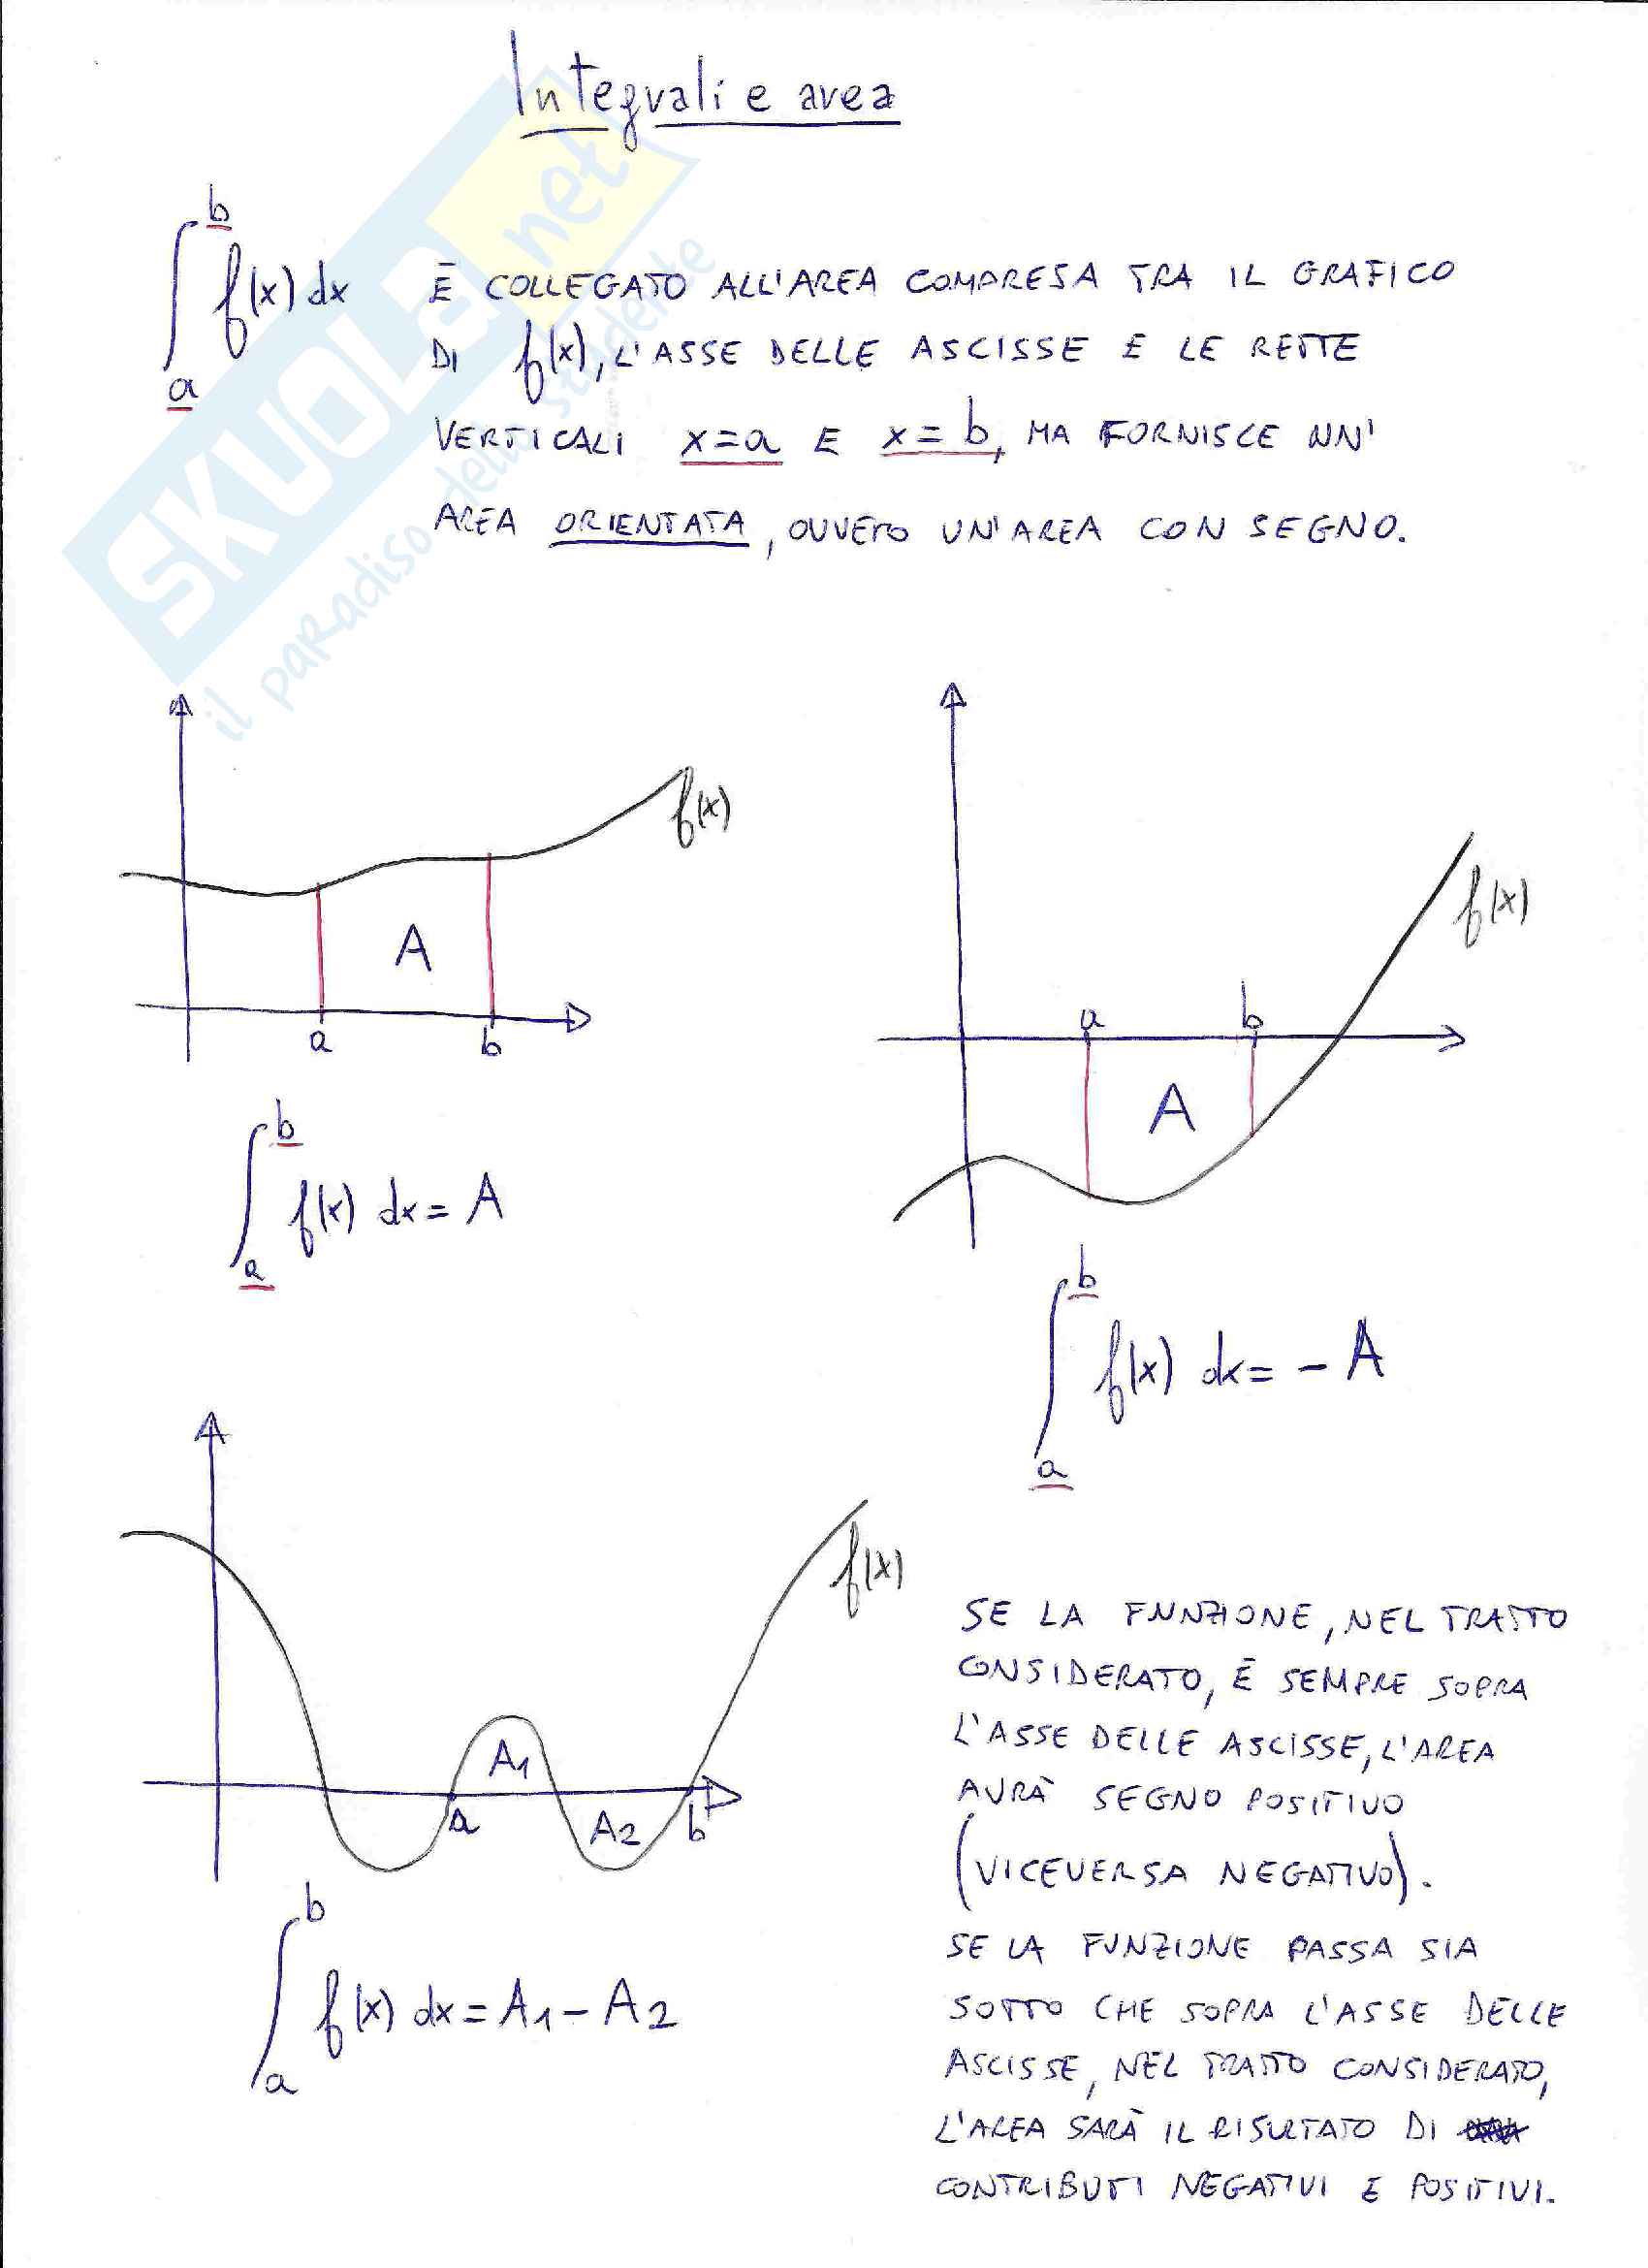 Integrali e area
∫ₐᵇ f(x) dx È COLLEGATO ALL'AREA COMPRESA TRA IL GRAFICO
DI f(x), L'ASSE DELLE ASCISSE E LE RETTE
VERTICALI x=a E x=b, MA FORNISCE UN'
AREA ORIENTATA, OVVERO UN'AREA CON SEGNO.
SKUOLA.net
il paradiso dello studente
f(x)
A
a b
∫ₐᵇ f(x) dx = A
f(x)
a b
A
∫ₐᵇ f(x) dx = - A
f(x)
A1
a A2 b
∫ₐᵇ f(x) dx = A1 - A2
SE LA FUNZIONE, NEL TRATTO
CONSIDERATO, È SEMPRE SOPRA
L'ASSE DELLE ASCISSE, L'AREA
AVRÀ SEGNO POSITIVO
(VICEVERSA NEGATIVO).
SE LA FUNZIONE PASSA SIA
SOTTO CHE SOPRA L'ASSE DELLE
ASCISSE, NEL TRATTO CONSIDERATO,
L'AREA SARÀ IL RISULTATO DI
CONTRIBUTI NEGATIVI E POSITIVI.